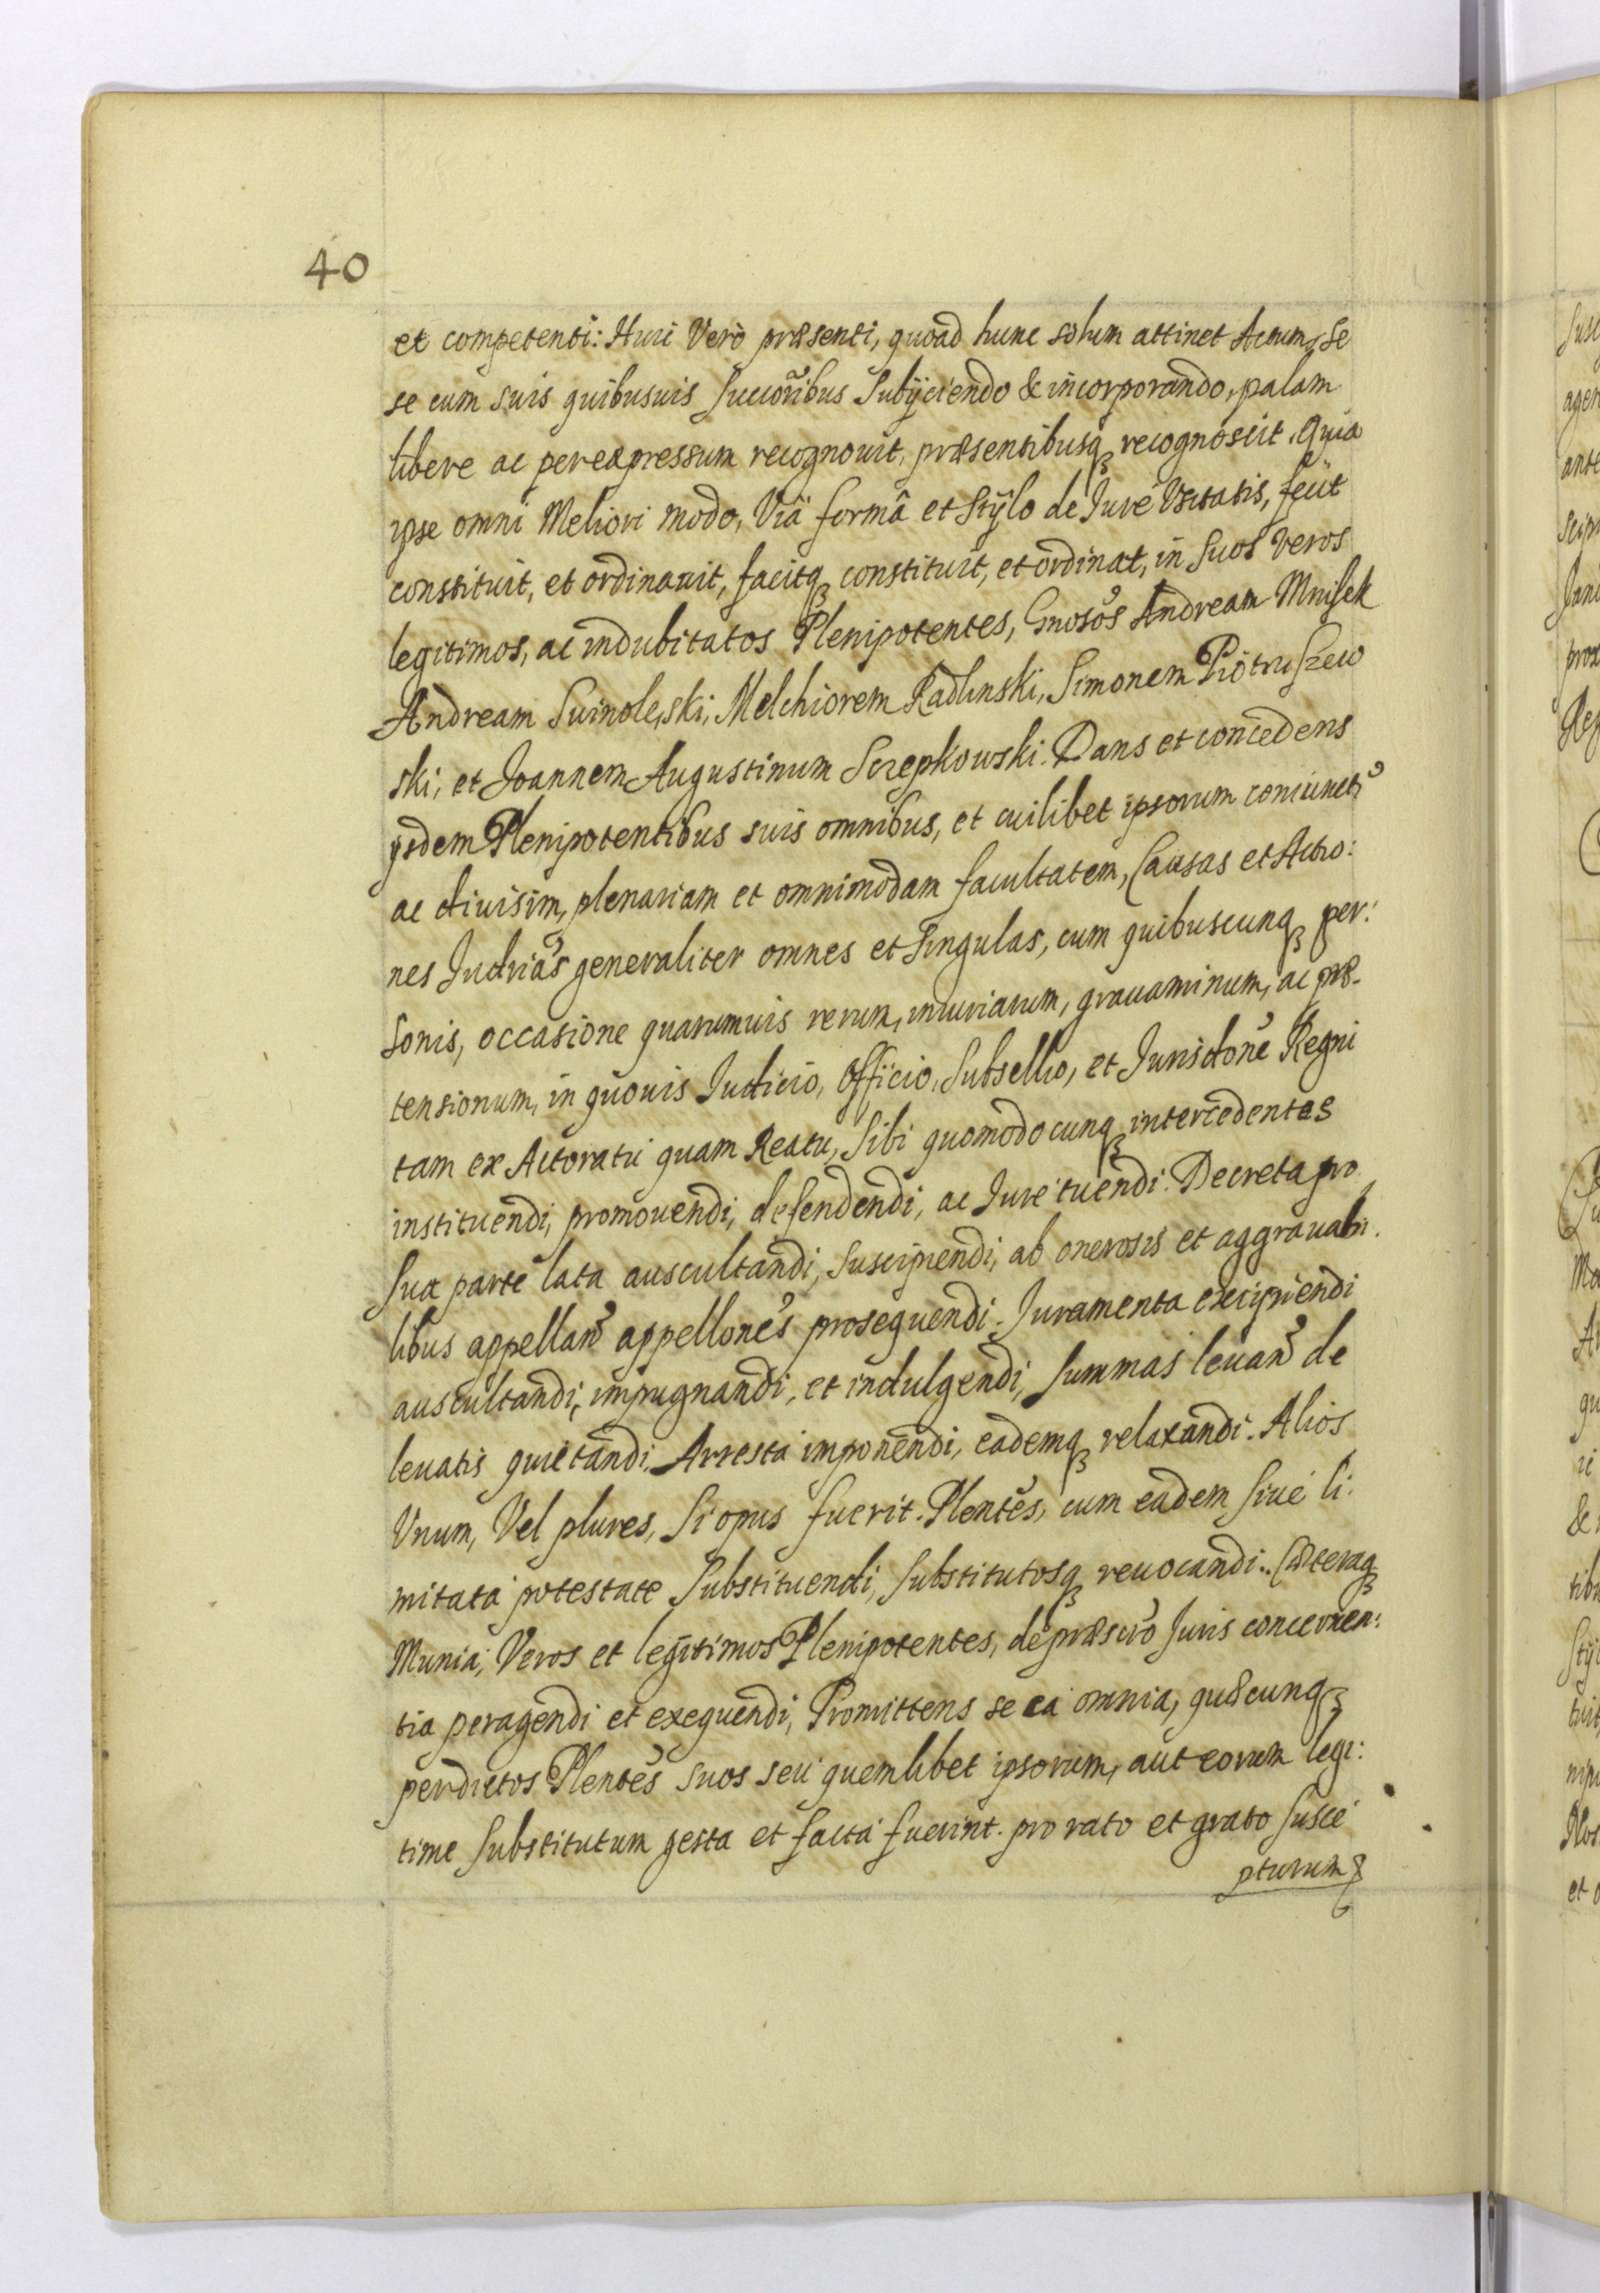 40
et competenti: Huic Verò præsenti, quoad hunc solum attinet Actum, se
se cum suis quibusuis Succõribus Subijciendo & incorporando, palam
libere ac per expressum recognouit, præsentibusq3 recognoscit. Quia
ipse omni Meliori modo, Viâ formâ et stÿlo de Iure Vsitatis, fecit
constituit, et ordinauit, facitq3 constituit, et ordinat, in suos veros
legitimos, ac indubitatos Plenipotentes, Gnosos Andream Mnisek
Andream Suinoleski, Melchiorem Radlinski, Simonem Piotruszew
ski, et Joannem Augustinum Szepkowski. Dans et concedens
ysdem Plenipotentibus suis omnibus, et cuilibet ipsorum coniuncti
ac diuisim, plenariam et omnimodam facultatem, Causas et Actio:
nes Judrias generaliter omnes et singulas, cum quibuscunq3 per:
sonis, occasione quarumuis rerum, iniuriarum, grauaminum, ac præ-
tensionum, in quouis Iudicio, Officio, Subsellio, et Jurisdone Regni
tam ex Actoratu quam Reatu, sibi quomodocunq3 intercedentes
instituendi, promouendi, defendendi, ac Iure tuendi. Decreta pro
sua parte lata auscultandi, suscipiendi, ab onerosis et aggrauabi.
libus appellan̉ appellones prosequendi. Juramenta excipiendi
auscultandi, impugnandi, et indulgendi, summas leuan̉ de
leuatis quietandi. Arresta imponendi, eademq3 relaxandi. Alios
Vnum, Vel plures, si opus fuerit. Plentes, cum eadem siue li:
mitata potestate Substituendi, substitutosq3 reuocandi.. Cæteraq3
Munia, Veros et legitimos Plenipotentes, de præscro Juris concernen:
tia peragendi et exequendi, Promittens se ea omnia, quæcunq3
per dictos Plentes suos seu quemlibet ipsorum, aut eorum legi:
time substitutum gesta et facta fuerint. pro rato et grato susce
pturum